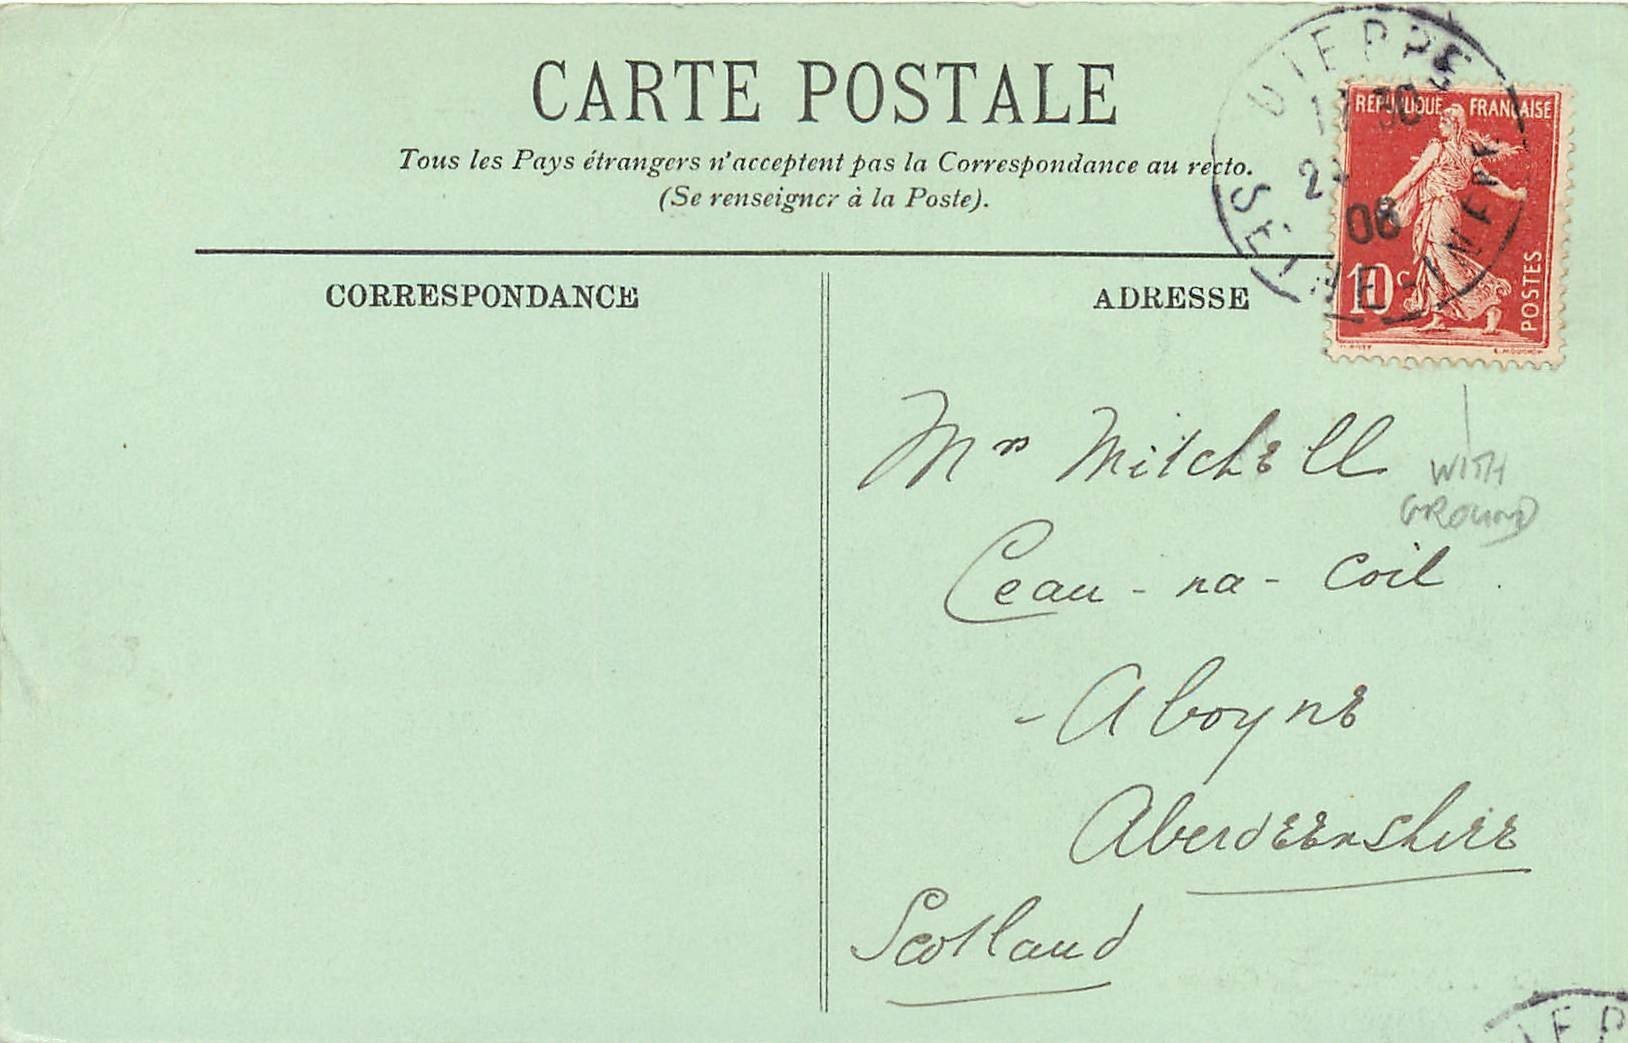 CARTE POSTALE
Tous les Pays étrangers n'acceptent pas la Correspondance au recto.
(Se renseigner à la Poste).
CORRESPONDANCE
ADRESSE
DIEPPE
SEINE-INFRE
08
REPUBLIQUE FRANCAISE
10c
POSTES
E. MOUCHON
Mrs Mitchell
Ceau-na-Coil
- Aboyne
Aberdeenshire
Scotland
WITH
GROUND
IEP